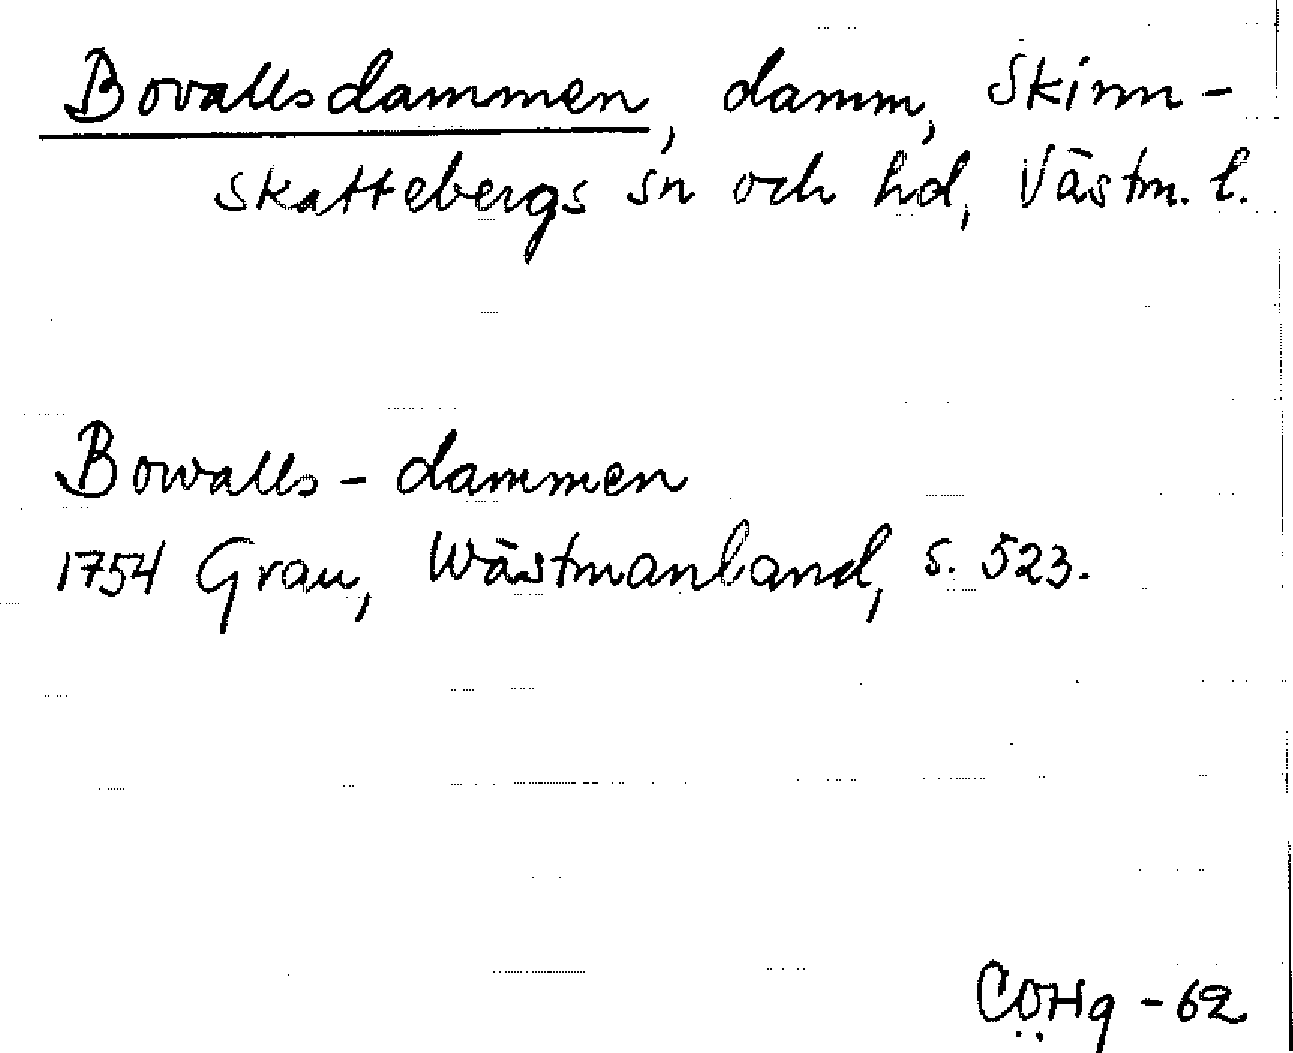 Bovallsdammen, damm, Skinn-
skattebergs sn och hd, Västm. l.
Bowalls-dammen
1754 Grau, Wästmanland, s. 523.
CÖHg -62